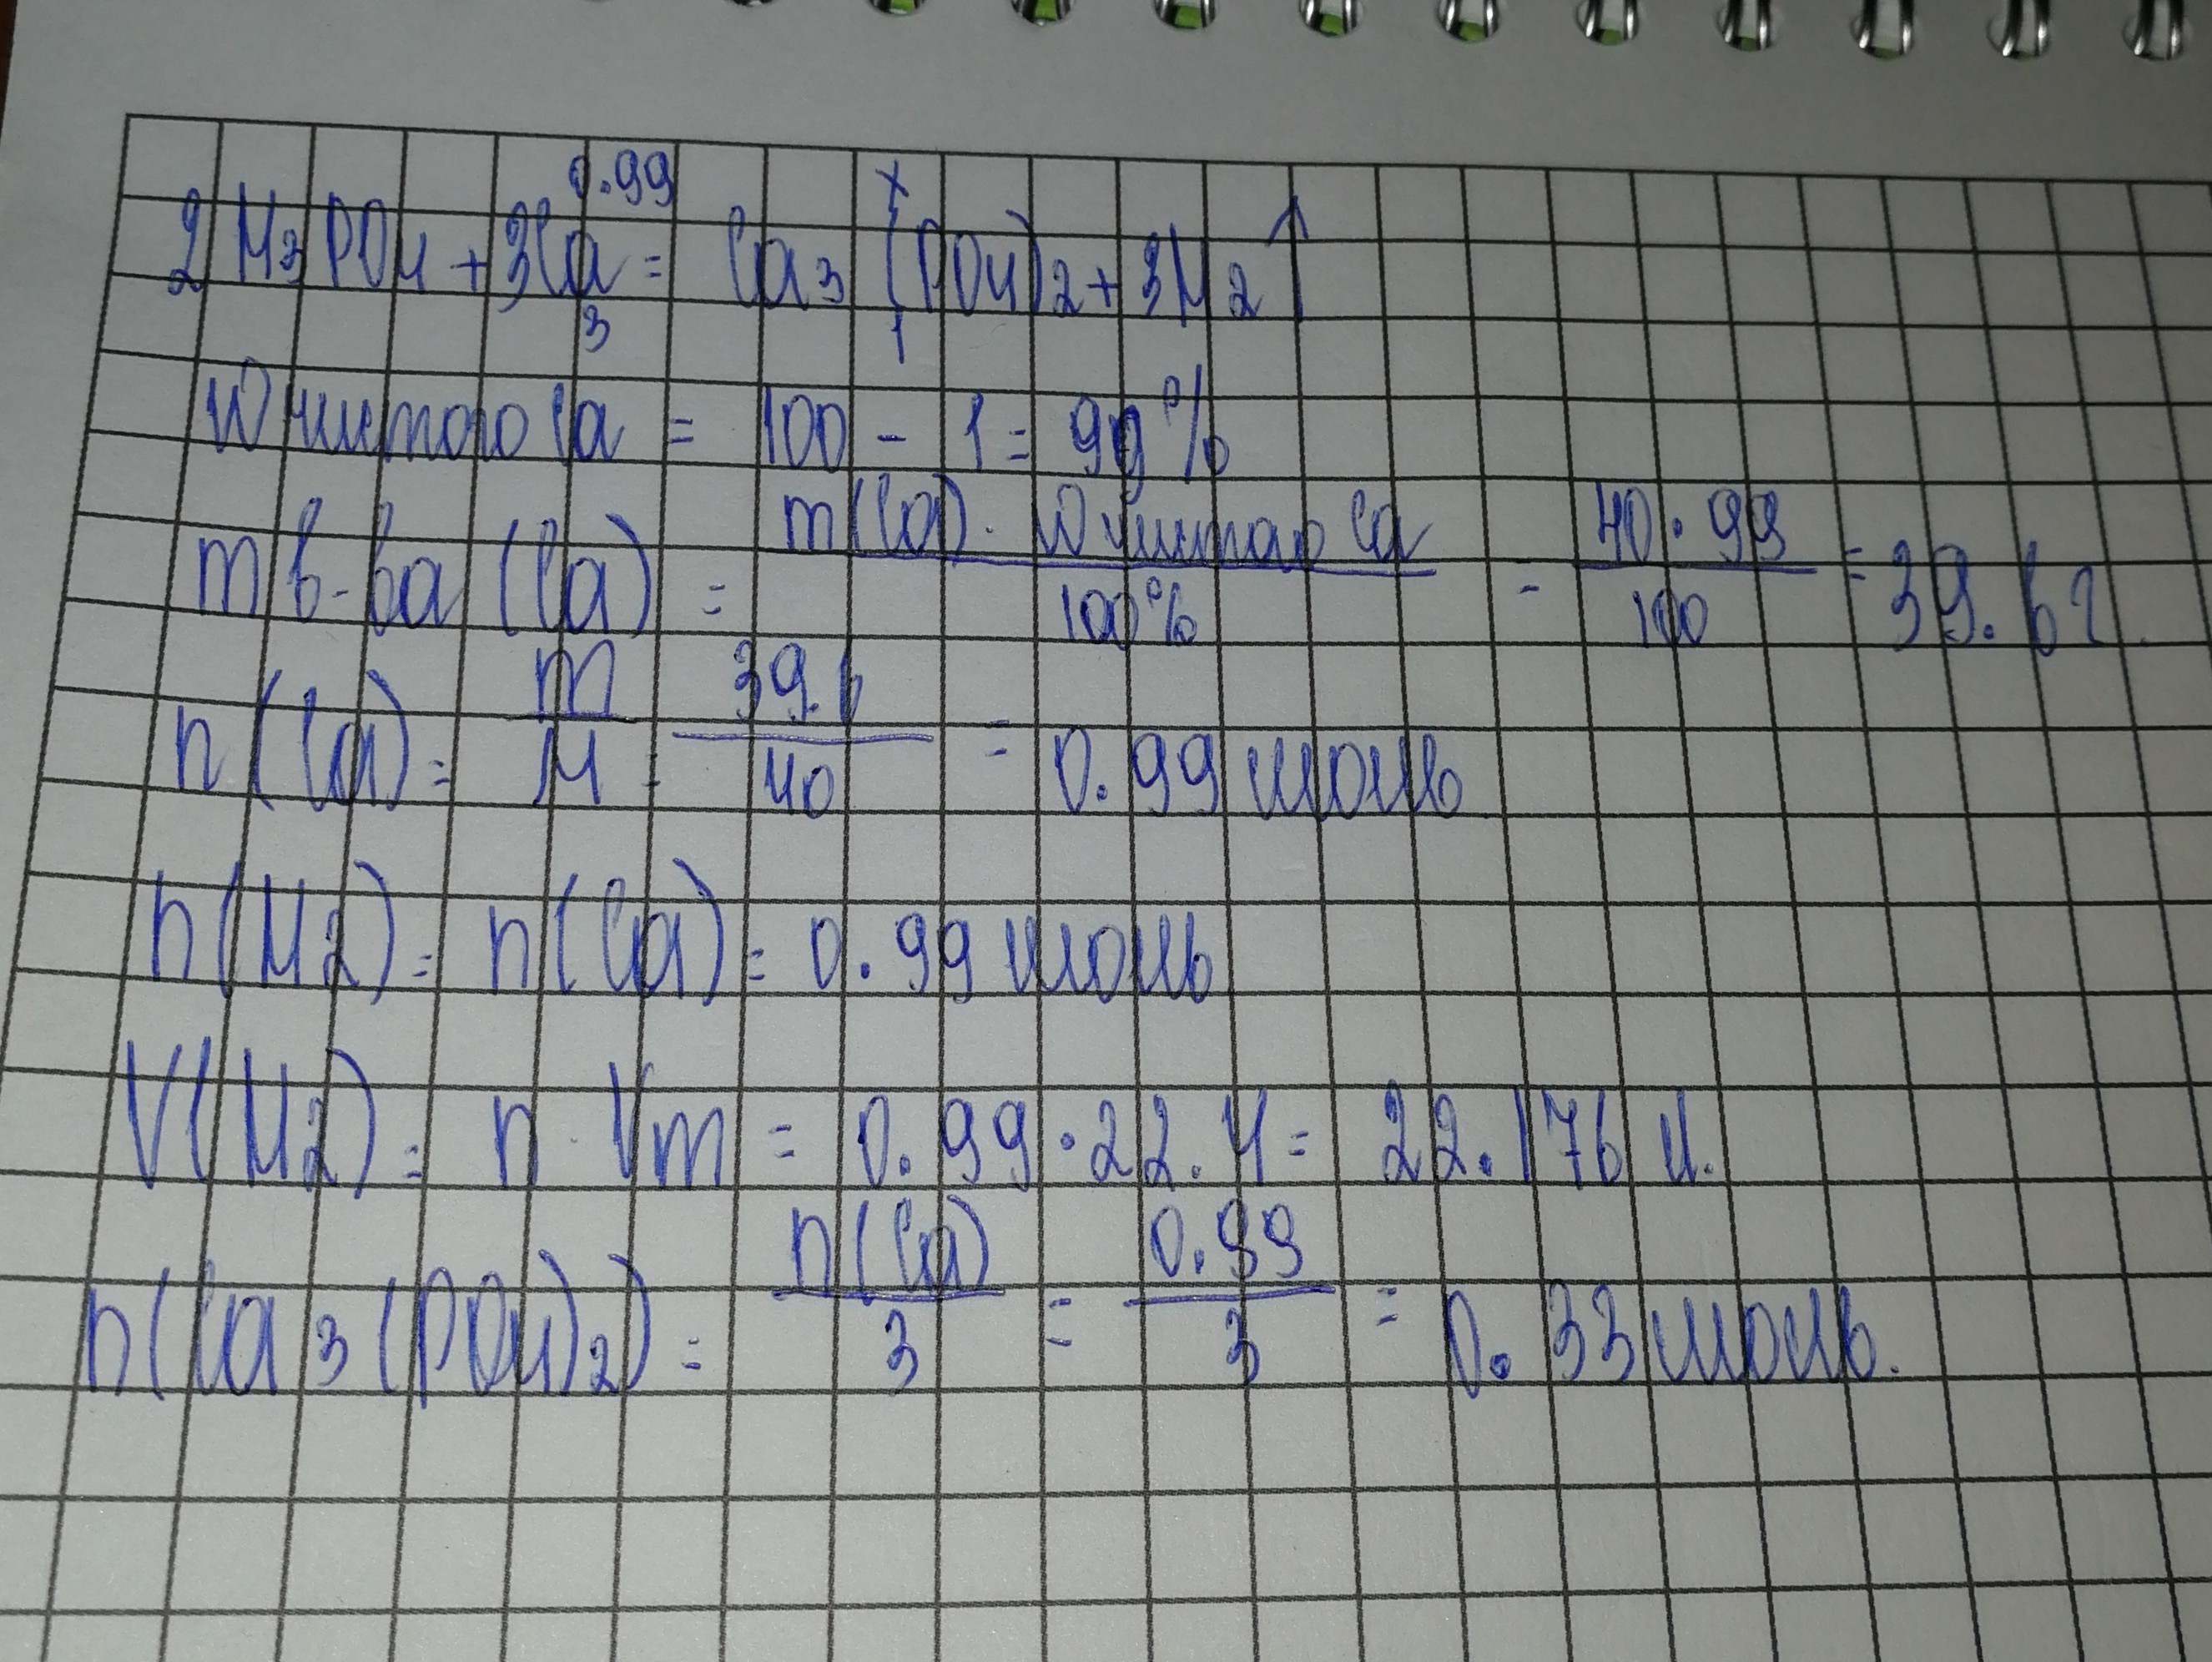 0.99 x
2H3PO4 + 3Ca = Ca3(PO4)2 + 3H2↑
3 1
W чистого Ca = 100 - 1 = 99%
m в-ва (Ca) = m(Ca) · W чистого Ca / 100% = 40 · 99 / 100 = 39.6 г.
n(Ca) = m / M = 39.6 / 40 = 0.99 моль
n(H2) = n(Ca) = 0.99 моль
V(H2) = n · Vm = 0.99 · 22.4 = 22.176 л.
n(Ca3(PO4)2) = n(Ca) / 3 = 0.99 / 3 = 0.33 моль.